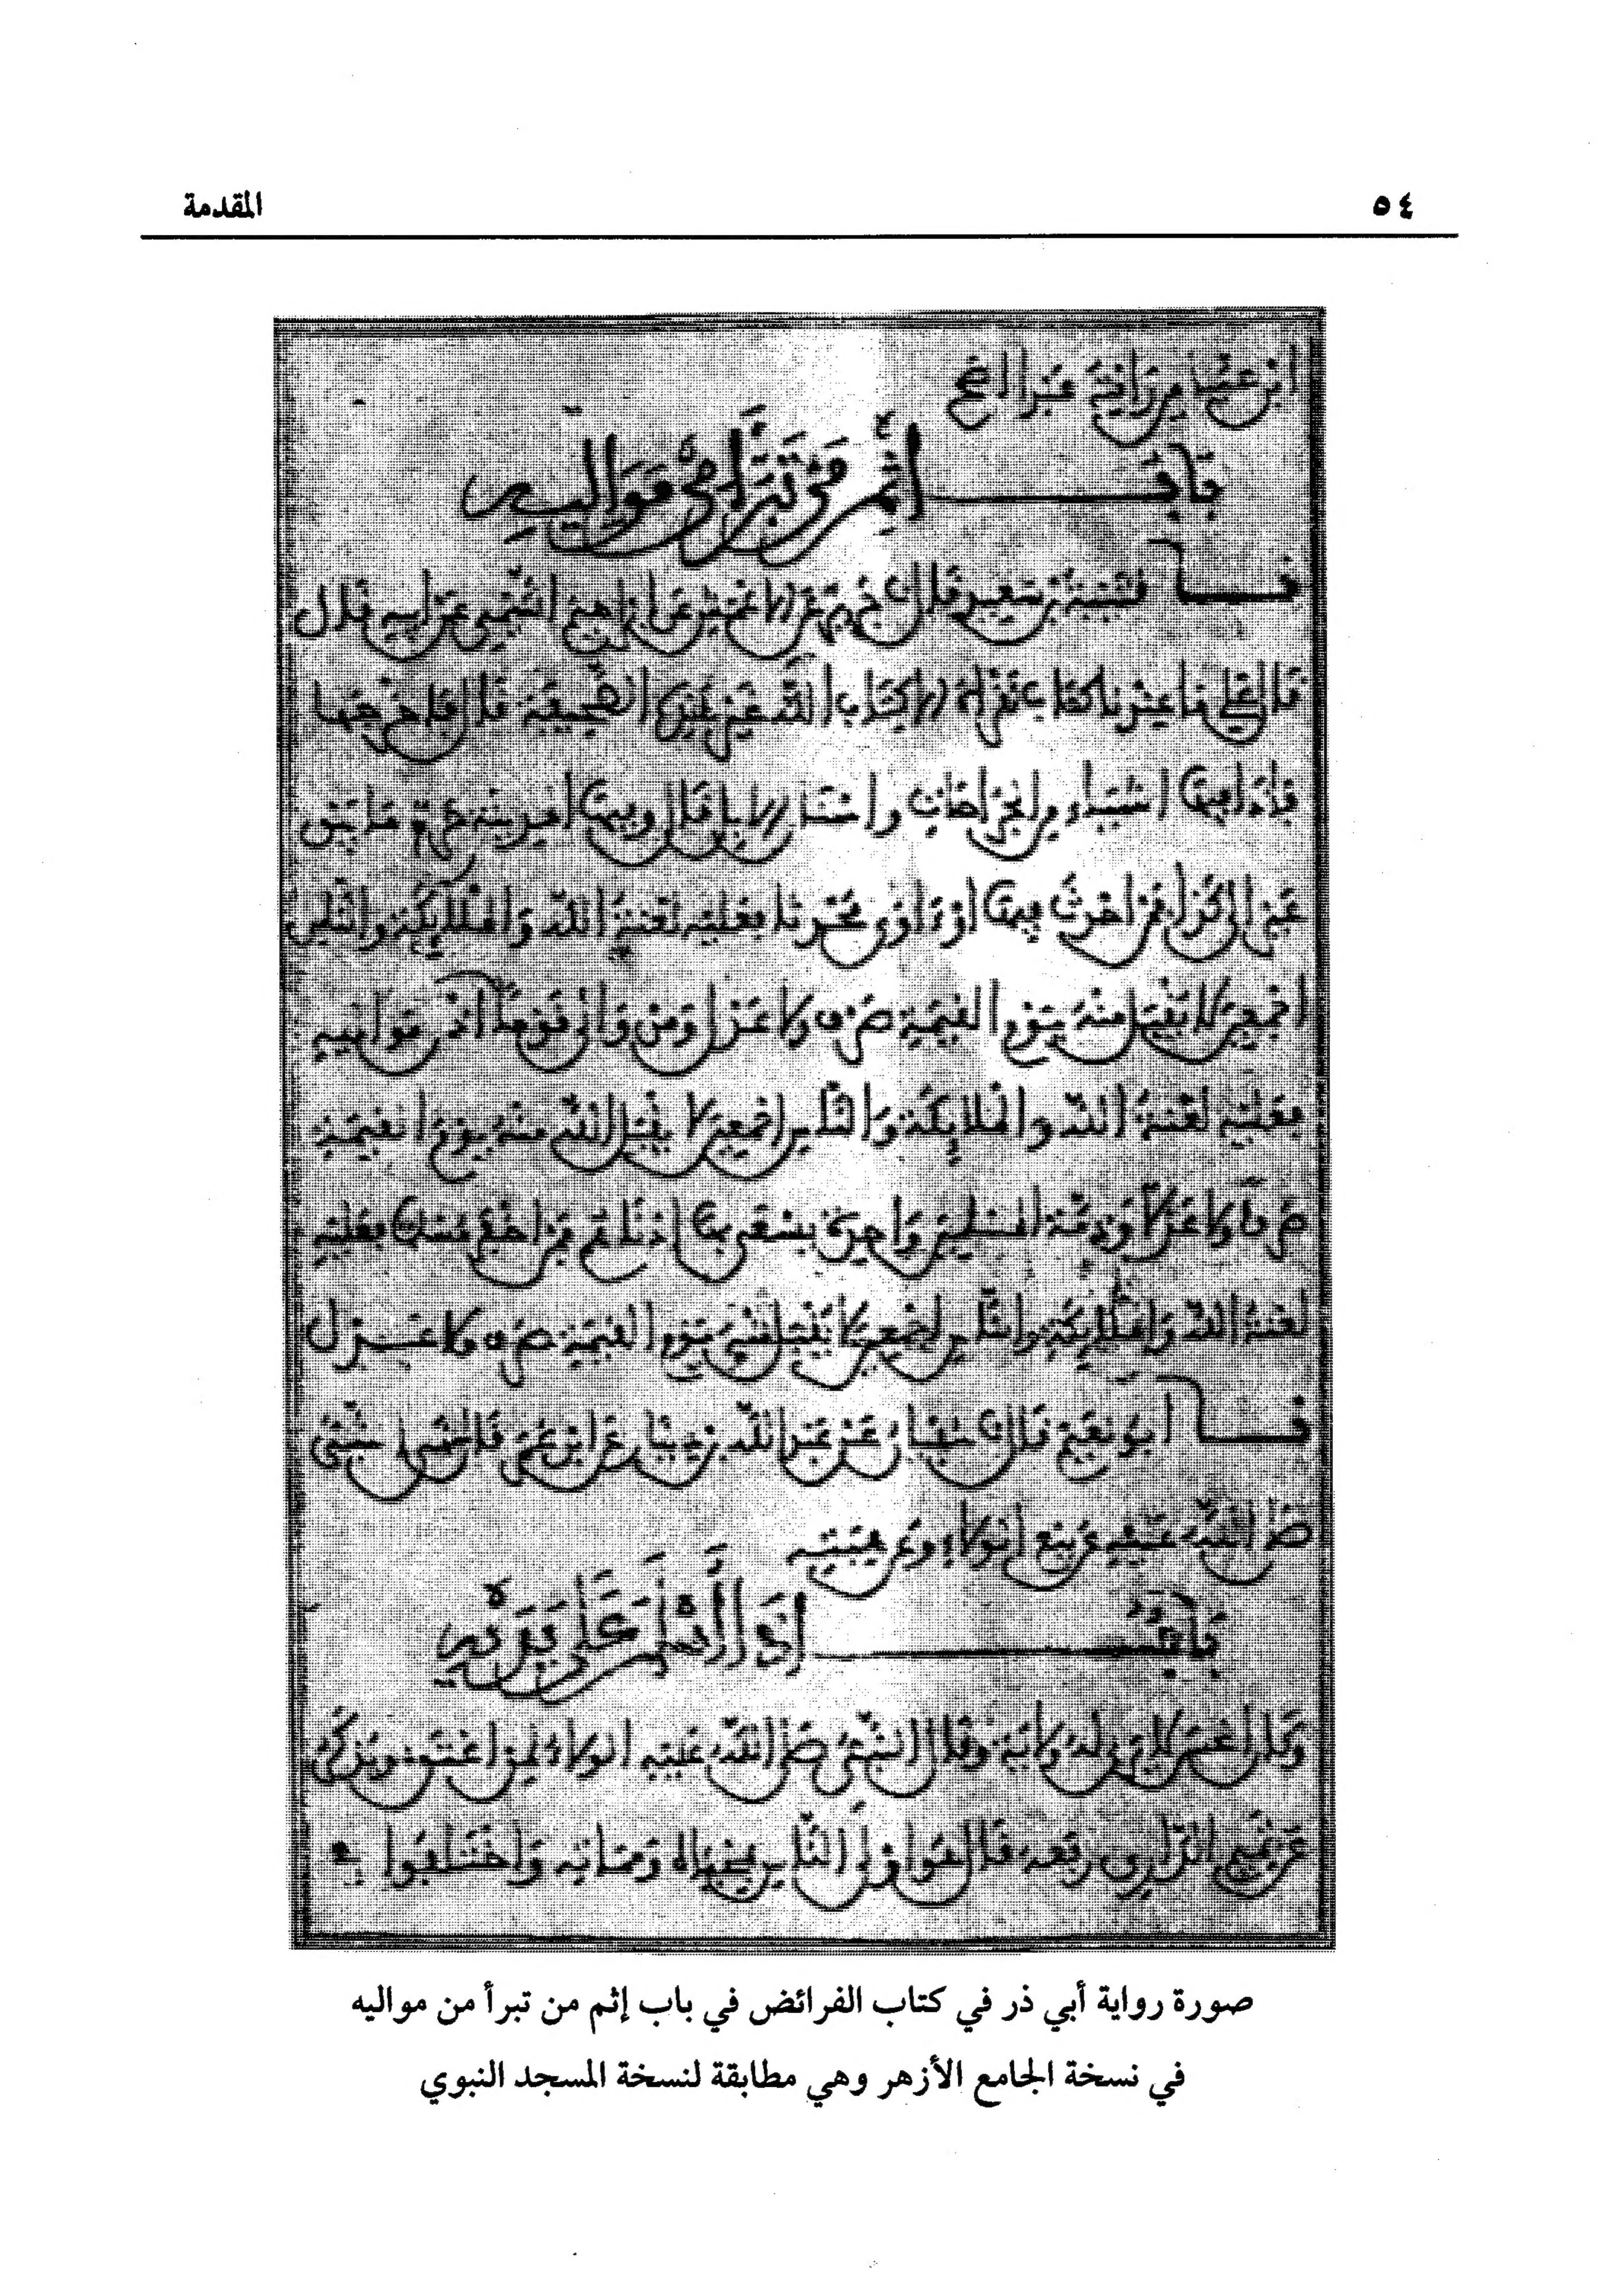 ٥٤
المقدمة
ابن عباس من رآني عبر الله
باب إثم من تبرأ من مواليه
نا قتيبة بن سعيد قال نا جرير عن الاعمش عن ابراهيم التيمي عن ابيه قال
قال علي ما عندنا كتاب نقرأه الا كتاب الله غير هذه الصحيفة قال فاخرجها
فاذا فيها اشياء من الجراحات واسنان الابل قال وفيها المدينة حرم ما بين
عير الى كذا فمن احدث فيها او ءاوى محدثا فعليه لعنة الله والملايكة والناس
اجمعين لا يقبل منه يوم القيمة صرف ولا عدل ومن والى قوما بغير اذن مواليه
فعليه لعنة الله والملايكة والناس اجمعين لا يقبل الله منه يوم القيمة
صرفا ولا عدلا وذمة المسلمين واحدة يسعى بها ادناهم فمن اخفر مسلما فعليه
لعنة الله والملايكة والناس اجمعين لا يقبل منه يوم القيمة صرف ولا عدل
نا ابو نعيم قال نا سفيان عن عبد الله بن دينار عن ابن عمر قال نهى النبي
صلى الله عليه عن بيع الولاء وعن هبته
باب اذا أسلم على يديه
وكان الحسن لا يرى له ولاية وقال النبي صلى الله عليه الولاء لمن اعتق ويذكر
عن تميم الداري رفعه قال هو اولى الناس بمحياه ومماته واختلفوا في
صورة رواية أبي ذر في كتاب الفرائض في باب إثم من تبرأ من مواليه
في نسخة الجامع الأزهر وهي مطابقة لنسخة المسجد النبوي